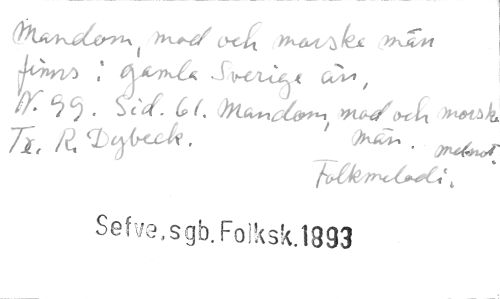 Mandom, mod och morske män
finns i gamla Sverige än,
N. 99. Sid. 61. Mandom, mod och morske
Tr. R. Dybeck. män. melnot.
Folkmelodi.
Sefve, sgb. Folksk. 1893